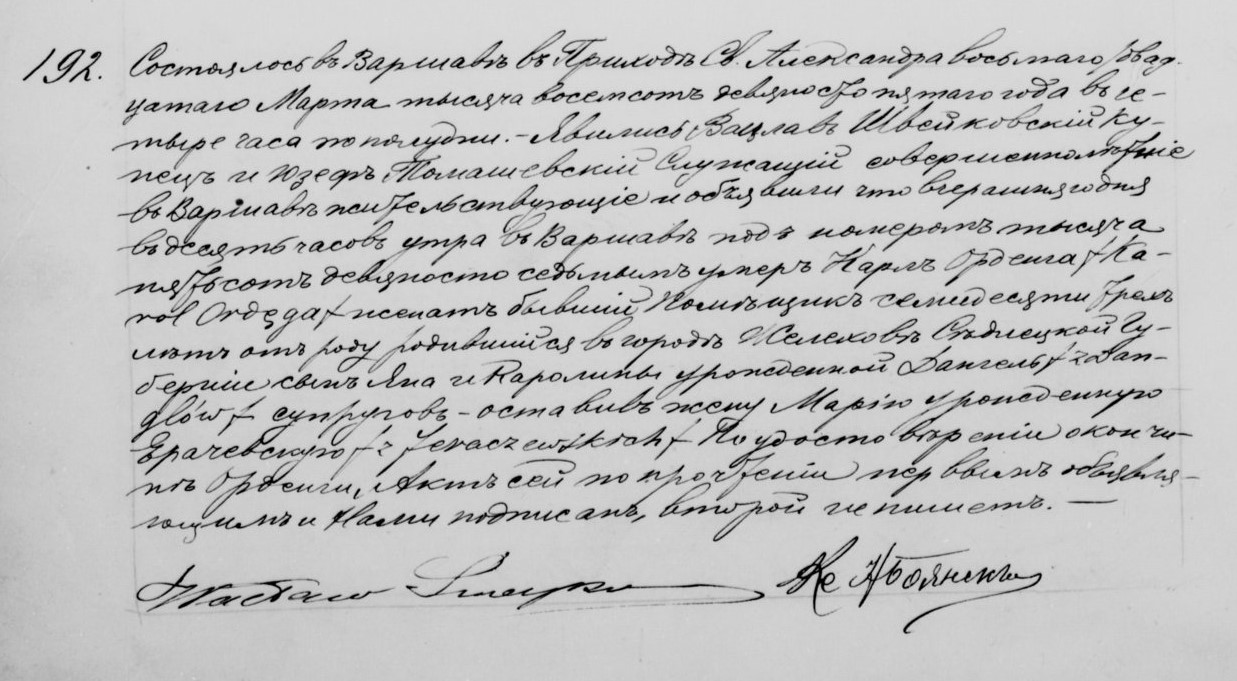 192. Состоялось въ Варшавѣ въ Приходѣ Св. Александра восьмаго /двад-
цатаго Марта тысяча восемсотъ девяносто пятаго года въ че-
тыре часа пополудни. – Явились Вацлавъ Швейковскій Ку-
пецъ и Юзефъ Томашевскій Служащій совершеннолѣтніе
въ Варшавѣ жительствующіе и объявили что вчерашняго дня
въ десять часовъ утра въ Варшавѣ подъ номеромъ тысяча
пятьсотъ девяносто седьмымъ умеръ Карлъ Орденга /Ka-
rol Ordęga/ женатъ бывшій Помѣщикъ семидесяти трехъ
лѣтъ отъ роду родившійся въ городѣ Желеховѣ Сѣдлецкой Гу-
берніи сынъ Яна и Каролины урожденной Дангель /z Dan-
glów/ супруговъ – оставивъ жену Марію урожденную
Ерачевскую /z Jeraczewskich/ По удостовѣреніи о кончи-
нѣ Орденги, Актъ сей по прочтеніи первымъ объявля-
ющимъ и Нами подписанъ, второй не пишетъ. —
Wacław